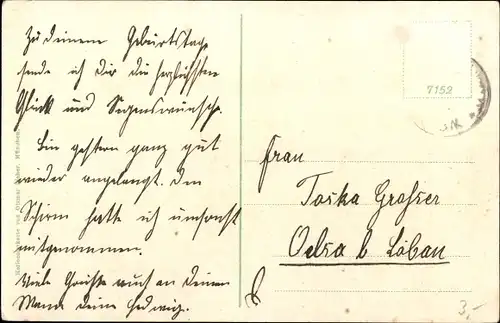 Zu deinem Geburtstage
sende ich dir die herzlichsten
Glück und Segenswünsche.
Bin gestern ganz gut
wieder angelangt. Den
Schirm hatte ich umsonst
mitgenommen.
Viele Grüße auch an Deinen
Mann Deine Hedwig.
7152
Frau
Toska Großer
Oelsa b Löbau
3,-